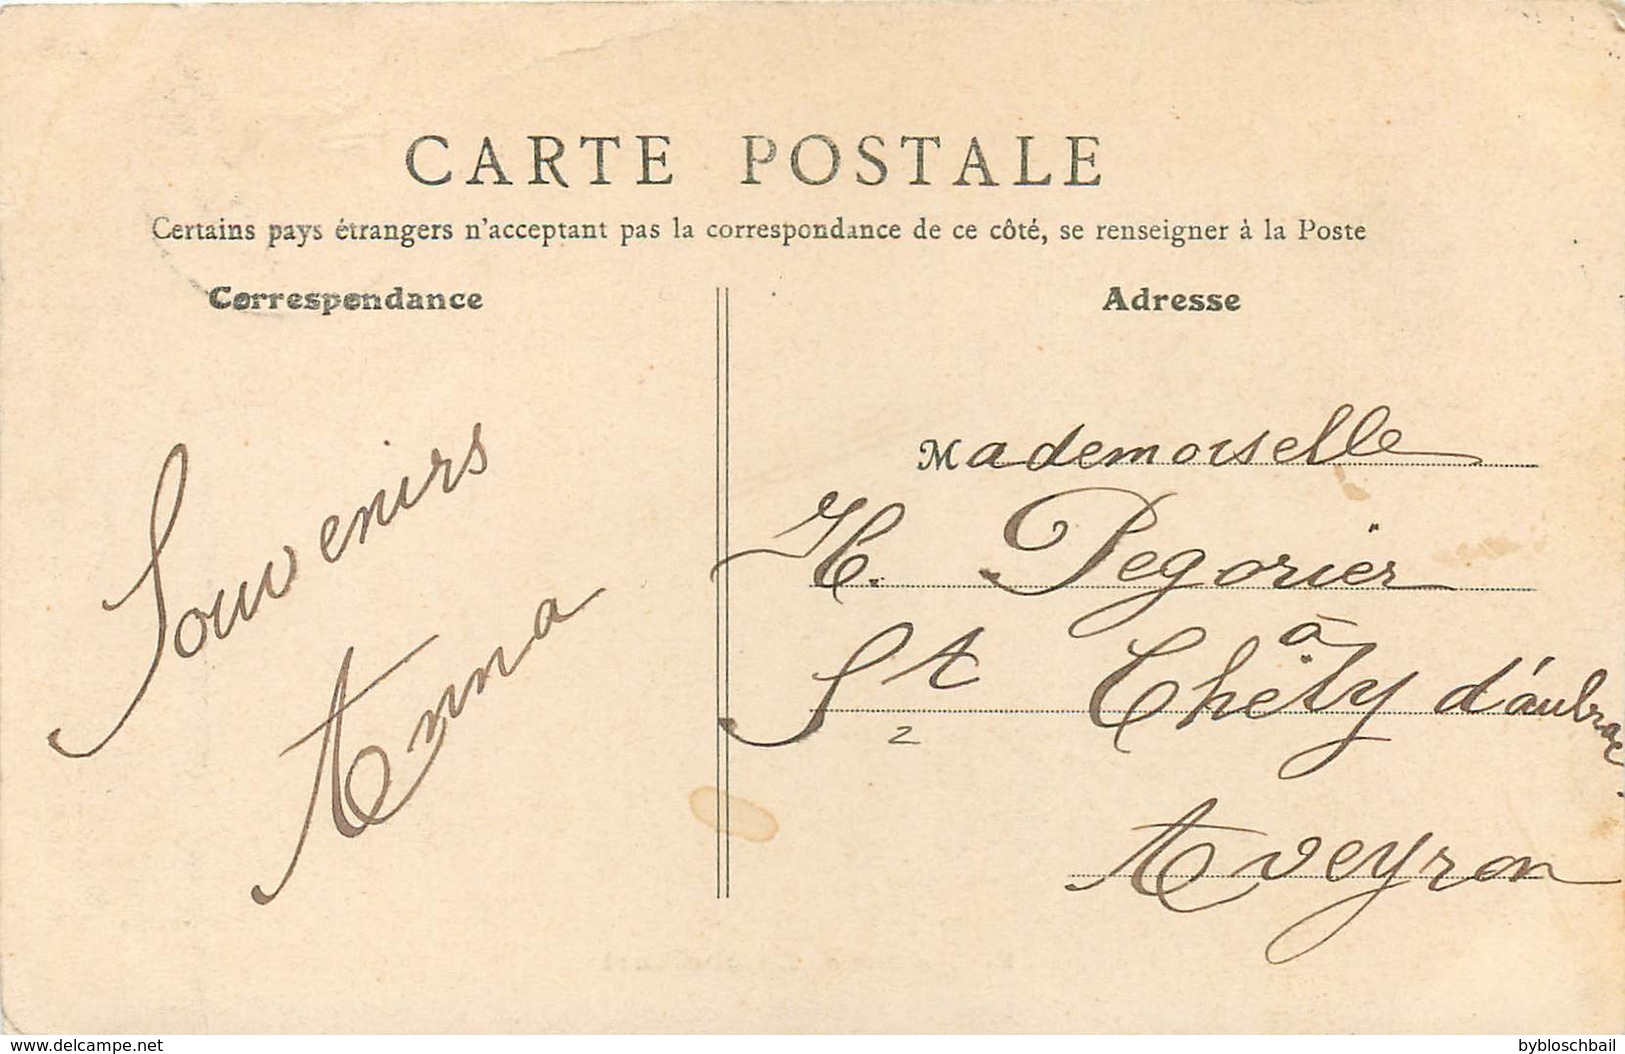 CARTE POSTALE
Certains pays étrangers n'acceptant pas la correspondance de ce côté, se renseigner à la Poste
Correspondance
Adresse
Souvenirs
Anna
Mademoiselle
H. Pegorier
à
St Chély d'aubrac
Aveyron
www.delcampe.net
bybloschbail